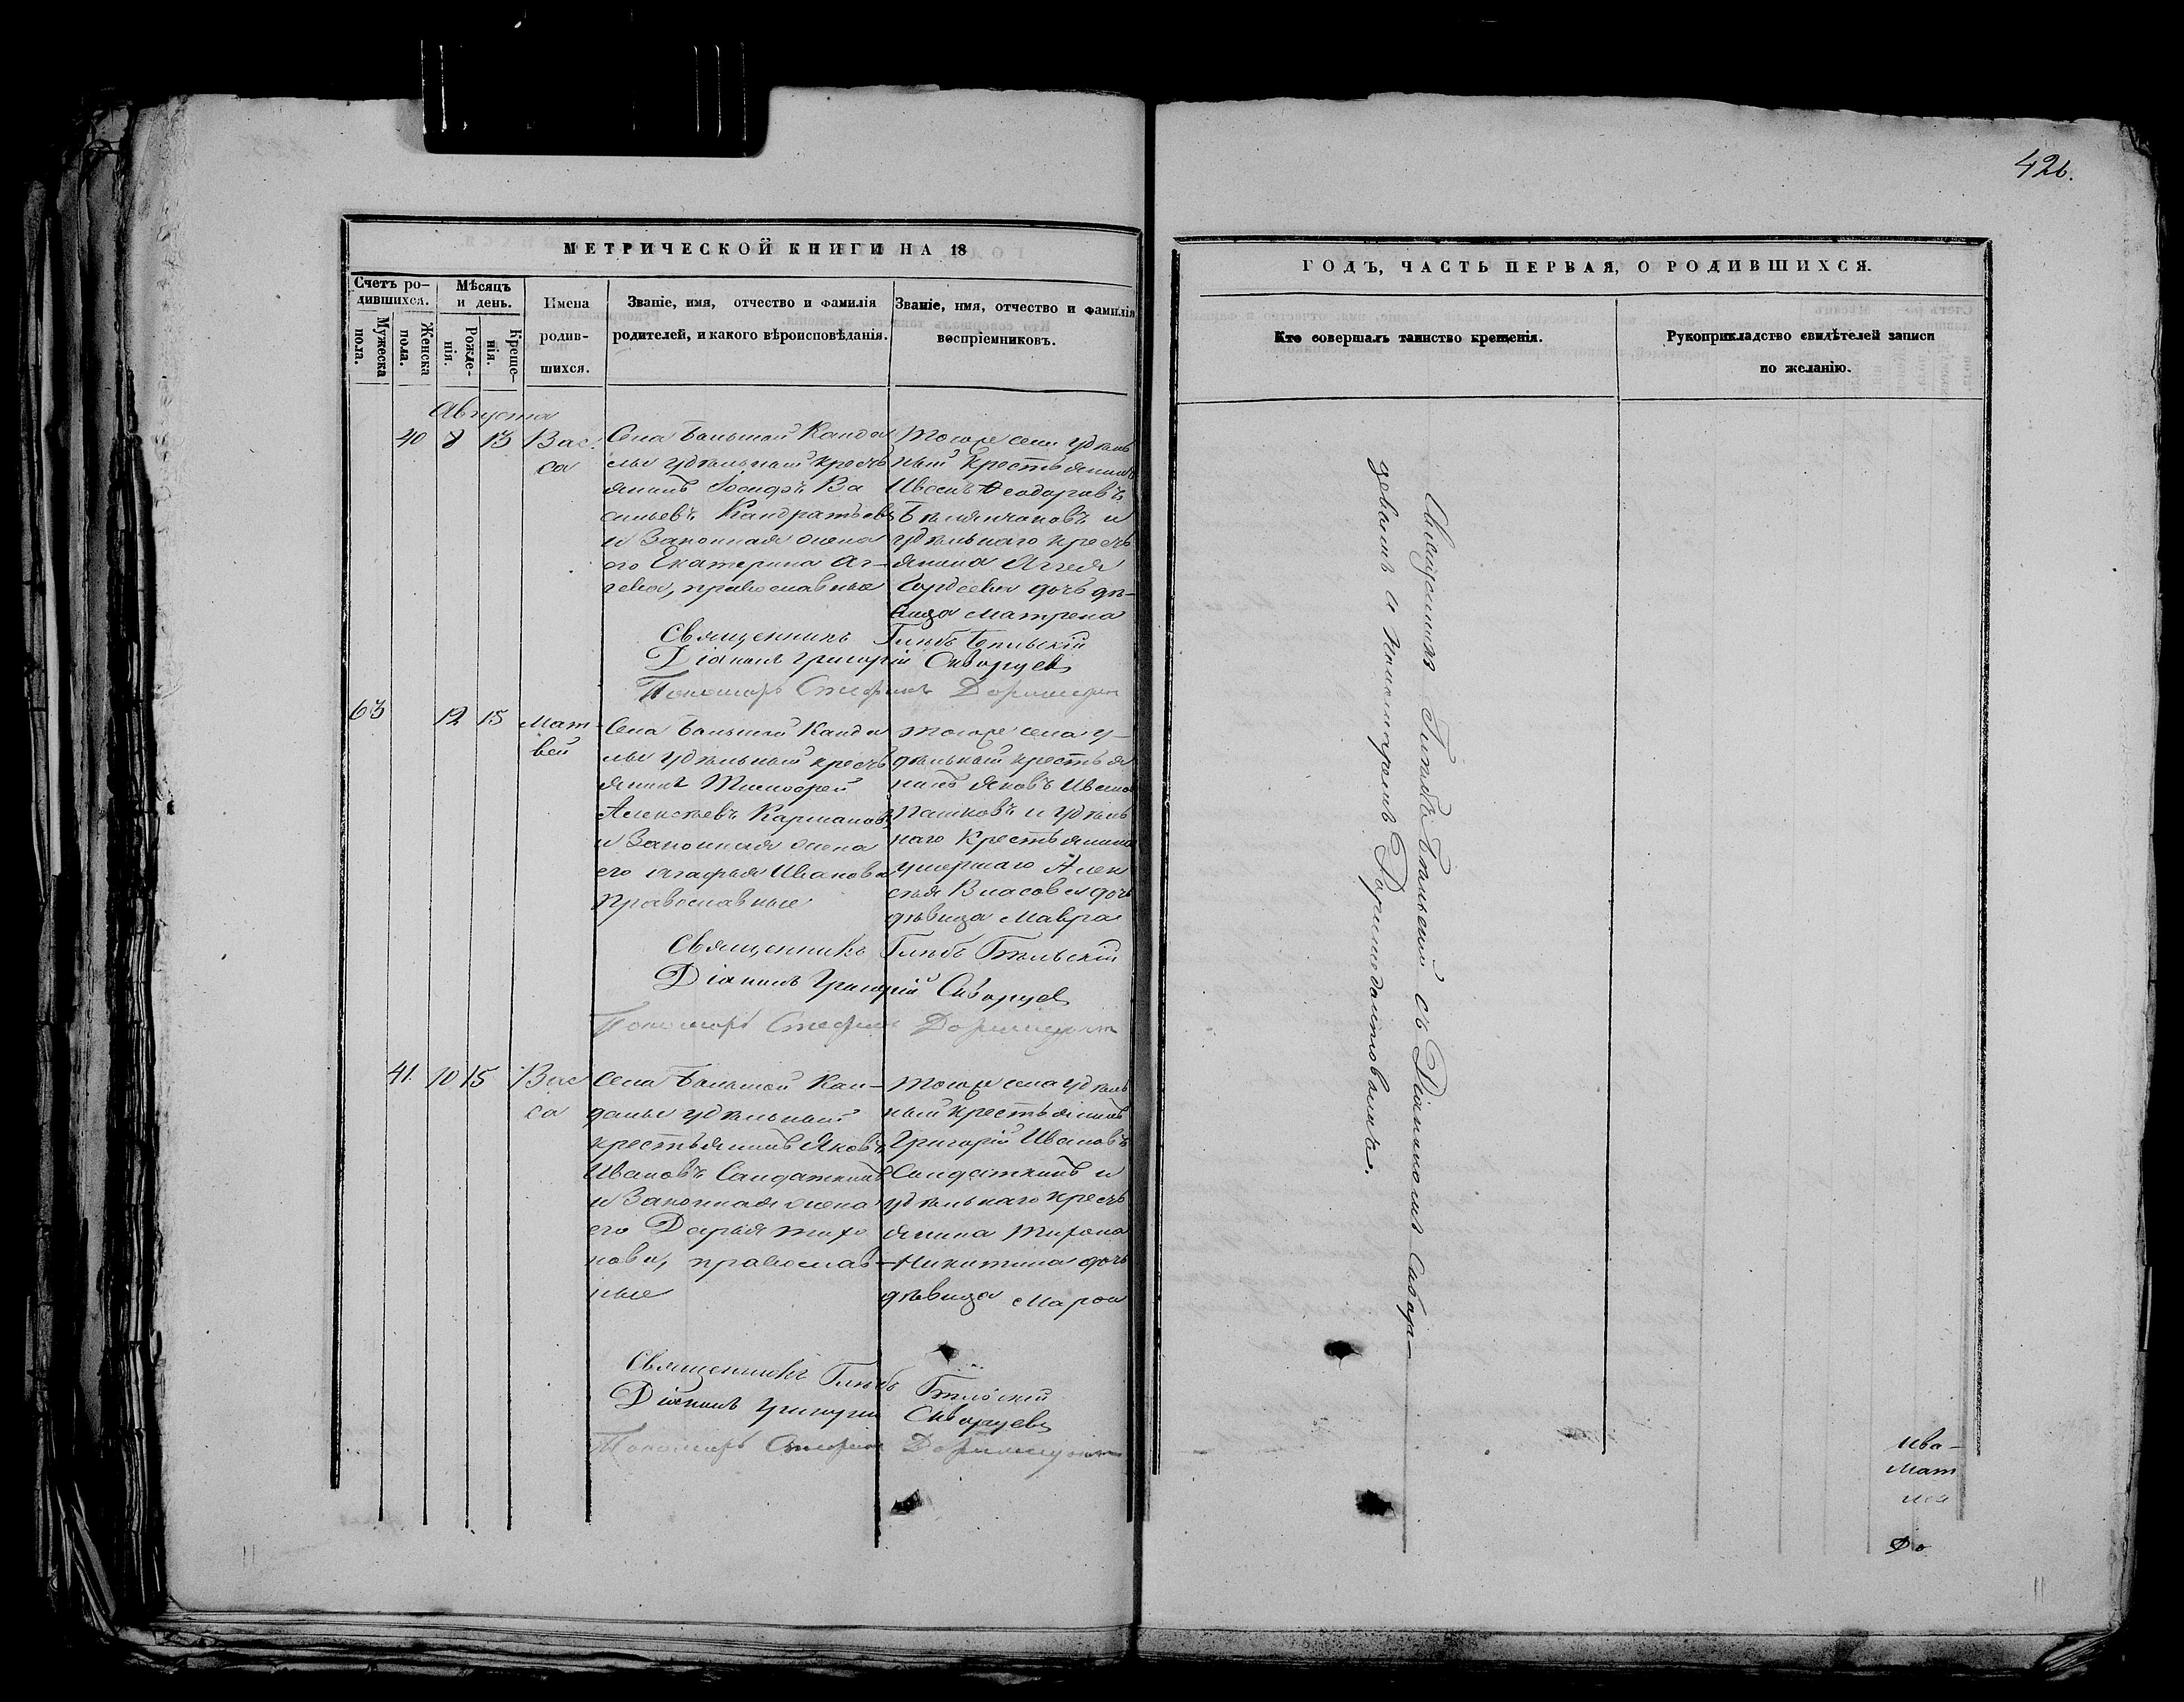 426.
МЕТРИЧЕСКОЙ КНИГИ НА 18
Счетъ ро-
дившихся.
Мужеска
пола.
Женска
пола.
Мѣсяцъ
и день.
Рожде-
нія.
Креще-
нія.
Имена
родив-
шихся.
Званіе, имя, отчество и фамилія
родителей, и какого вѣроисповѣданія.
Званіе, имя, отчество и фамилія
воспріемниковъ.
Августа
40 8 13 Вас
са
Села Большой Канда
лы удѣльный кресть
янинъ Іосифъ Ва
сильевъ Кандратьевъ
и Законная жена
его Екатерина Аг-
геева, православные
Тогоже села удѣль
ный крестьянинъ
Иванъ Ѳеодоровъ
и
удѣльнаго кресть
янина Аггея
Гордеева дочь дѣ-
вица Матрена
Священникъ Глѣбъ Бѣльскій
Діаконъ Григорій Скворцевъ
Пономарь Стефанъ
63 12 15 Мат
вей
Села Большой Канда
лы удѣльный кресть
янинъ Тимоѳей
Алексѣевъ Кармановъ
и Законная жена
его Агафья Иванова
православные
Тогоже села у-
дѣльный крестья
нинъ Яковъ Ивано
Пашковъ и удѣль
наго Крестьянина
умершаго Алек
сѣя Власова дочь
дѣвица Мавра
Священникъ Глѣбъ Бѣльскій
Діаконъ Григорій Скворцевъ
Пономарь Стефанъ
41. 10 15 Вас
са
Села Большой Кан-
далы удѣльный
крестьянинъ Яковъ
Ивановъ Салдаткинъ
и Законная жена
его Дарья Миро
нова, православ-
ные
Тогоже села удѣль
ный крестьянинъ
Григорій Ивановъ
Салдаткинъ и
удѣльнаго кресть
янина Мирона
Никитина дочь
дѣвица
Священникъ Глѣбъ Бѣльскій
Діаконъ Григорій Скворцевъ
Пономарь Стефанъ
ГОДЪ, ЧАСТЬ ПЕРВАЯ, О РОДИВШИХСЯ.
Кто совершалъ таинство крещенія.
Рукоприкладство свидѣтелей записи
по желанію.
Священникъ Глѣбъ Бѣльскій съ Діакономъ Сквор-
цевымъ и Пономаремъ
Ива-
Мат
До